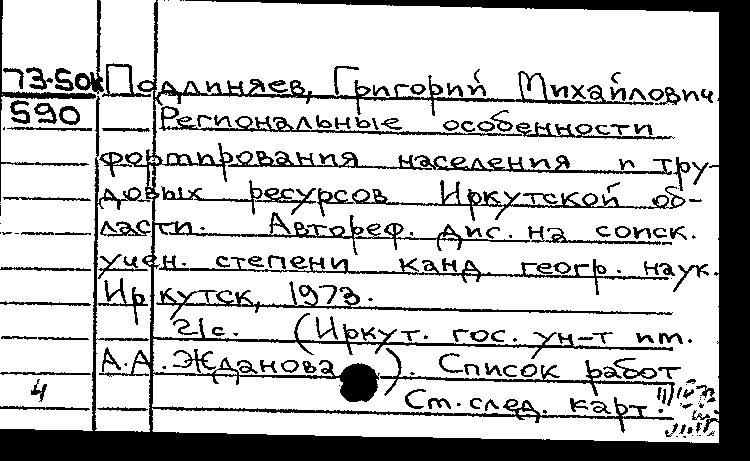 73-50к Подлиняев, Григорий Михайлович.
590 Региональные особенности
формирования населения и тру-
довых ресурсов Иркутской об-
ласти. Автореф. дис. на соиск.
учен. степени канд. геогр. наук.
Иркутск, 1973.
21с. (Иркут. гос. ун-т им.
А.А. Жданова). Список работ
4 См. след. карт.